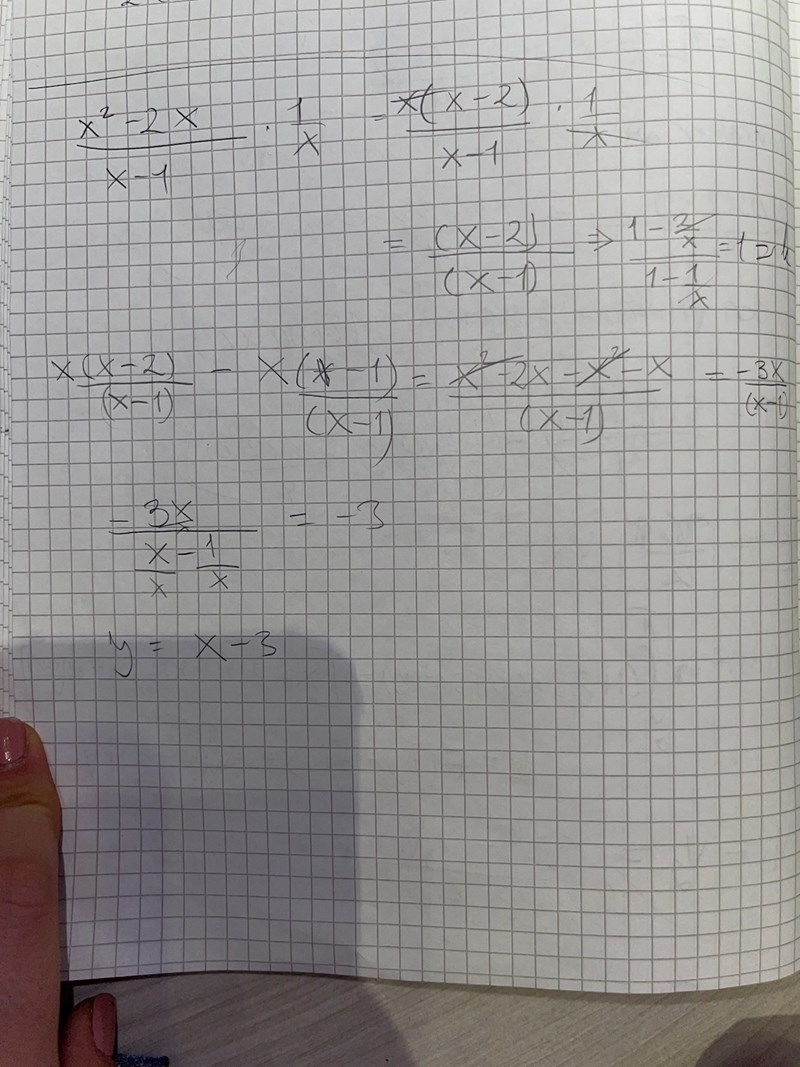 (x² - 2x)/(x - 1) · 1/x = x(x - 2)/(x - 1) · 1/x
= (x - 2)/(x - 1) ⇒ (1 - 2/x)/(1 - 1/x) = 1
x(x - 2)/(x - 1) - x(x - 1)/(x - 1) = (x² - 2x - x² - x)/(x - 1) = -3x/(x - 1)
-3x/(x/x - 1/x) = -3
y = x - 3